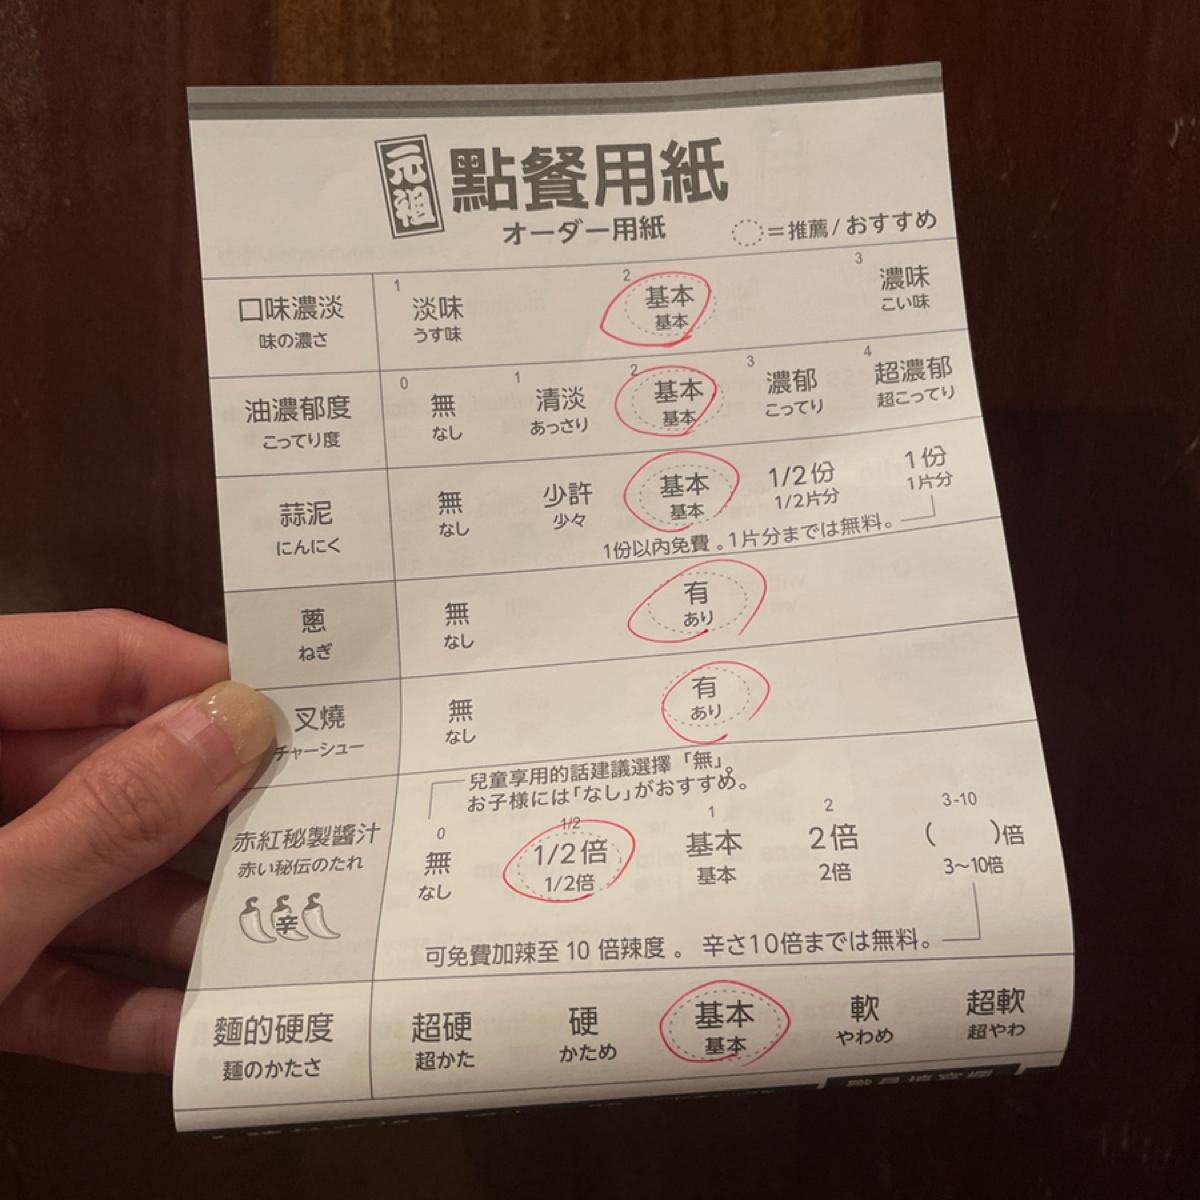 元祖 點餐用紙
オーダー用紙
=推薦/おすすめ
口味濃淡
味の濃さ
1 淡味
うす味
2 基本
基本
3 濃味
こい味
油濃郁度
こってり度
0 無
なし
1 清淡
あっさり
2 基本
基本
3 濃郁
こってり
4 超濃郁
超こってり
蒜泥
にんにく
無
なし
少許
少々
基本
基本
1/2份
1/2片分
1份
1片分
1份以內免費。1片分までは無料。
蔥
ねぎ
無
なし
有
あり
叉燒
チャーシュー
無
なし
有
あり
赤紅秘製醬汁
赤い秘伝のたれ
辛
兒童享用的話建議選擇「無」。
お子様には「なし」がおすすめ。
0
無
なし
1/2
1/2倍
1/2倍
1
基本
基本
2
2倍
2倍
3-10
( )倍
3~10倍
可免費加辣至 10 倍辣度。 辛さ10倍までは無料。
麵的硬度
麺のかたさ
超硬
超かた
硬
かため
基本
基本
軟
やわめ
超軟
超やわ